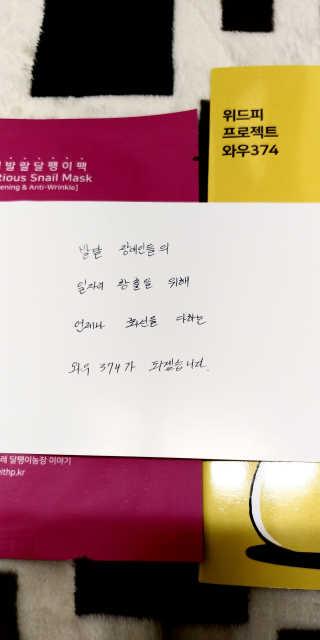 위드피
프로젝트
와우374
발랄달팽이팩
tious Snail Mask
ening & Anti-Wrinkle]
발달 장애인들의
일자리 창출을 위해
언제나 최선을 다하는
와우 374가 되겠습니다.
래 달팽이농장 이야기
ithp.kr